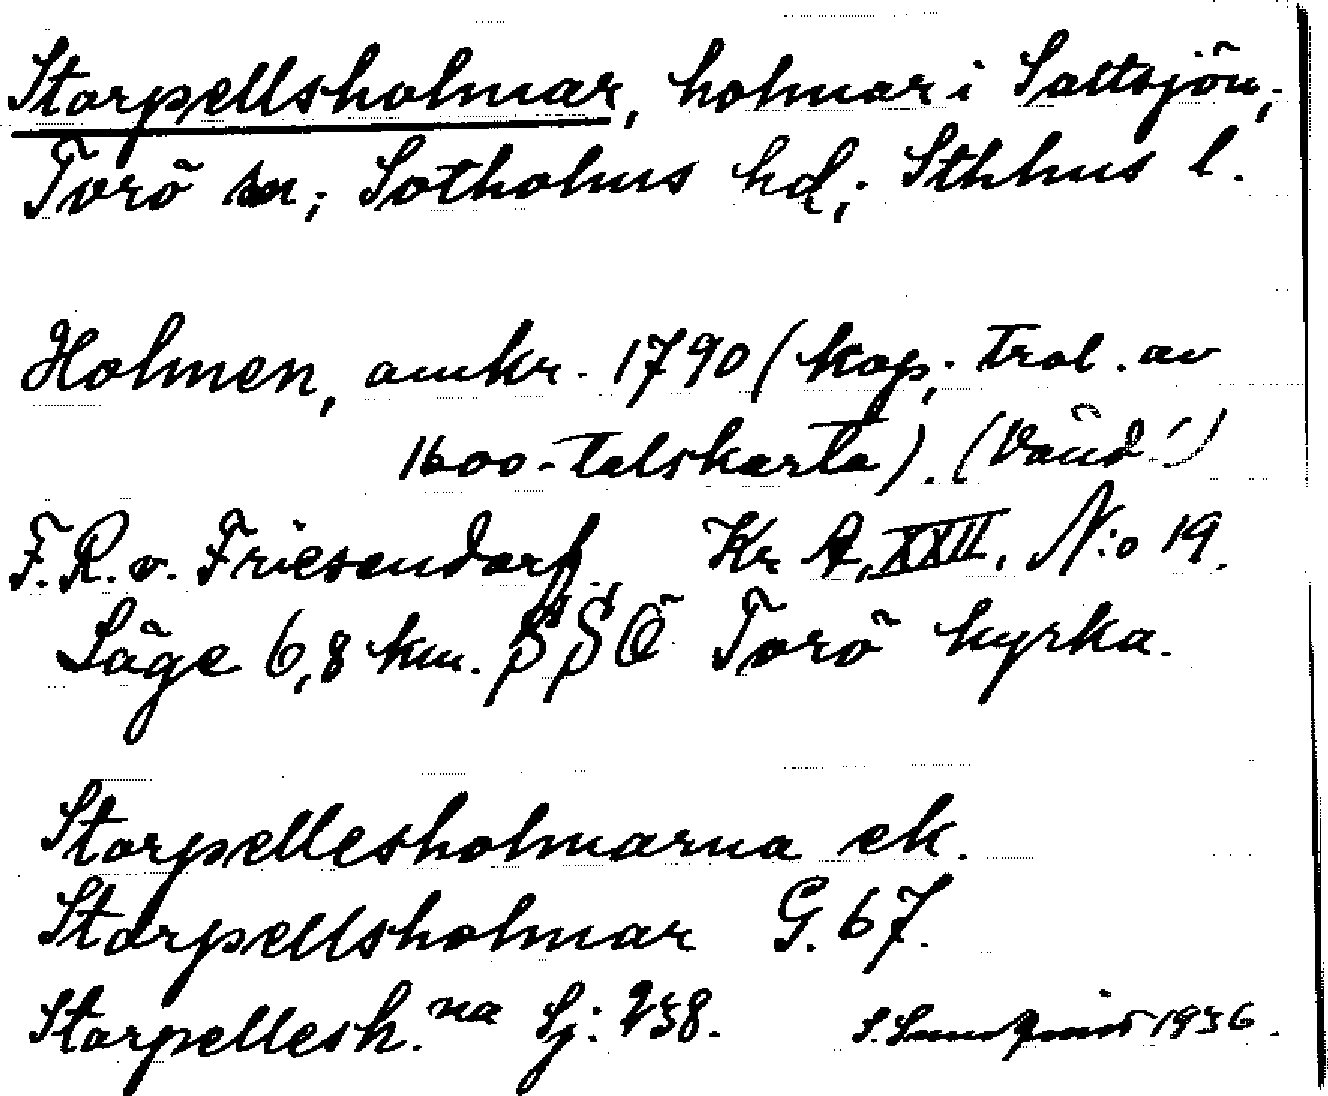 Storpellsholmar, holmar i Saltsjön,
Torö sn; Sotholms hd; Sthlms l.
Holmen, omkr. 1790 (kop. trol. av
1600-talskarta). (Vänd!)
F. R. v. Friesendorf Kr A, XXII, N:o 19.
Läge 6,8 km. SSÖ Torö kyrka.
Storpellesholmarna ek.
Storpellsholmar G. 67.
Storpellesh.na Sj: 238.
S. Sundqvist 1936.